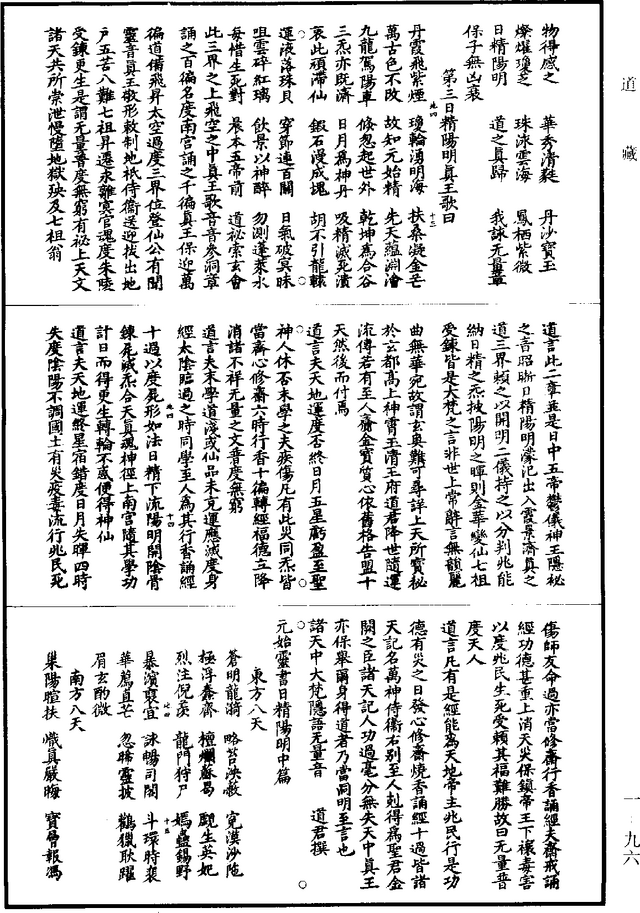 道藏
物得感之 華秀清凝 丹沙寶玉
燦爛瓊芝 珠泳雲海 鳳栖紫微
日精陽明 道之真歸 我誠无量
保子無凶衰
第三日精陽明真王歌曰
丹霞飛紫煙 瓊輪湧明海 扶桑凝金芒
萬古色不改 故知元始精 先天蘊淵澮
九龍駕陽車 倏忽起世外 乾坤為合谷
三炁亦既濟 日月為神丹 吸精滅死潰
哀此頑滯仙 鍜石漫成塊 胡不引龍轅
運液落珠貝 穿節連百關 日氣破冥昧
咀雲碎紅璃 飲景以神醉 勿測蓬萊水
每惜生死對 晨本五帝前 道祕索玄會
此三界之上飛空之中真王歌音音參洞章
誦之百徧名度南宮誦之千徧真王保迎萬
徧道備飛昇太空過度三界位登仙公有聞
靈音真王敬形敕制地祇侍衛送迎拔出地
户五苦八難七祖昇遷永離寞官魂度朱陵
受鍊更生是謂无量普度無窮有祕上天文
諸天共所崇泄慢墮地獄殃及七祖翁
道言此二章並是日中五帝鬱儀神王隱祕
之音昭晰日精陽明濛汜出入霞景濟真之
道三界賴之以開明二儀持之以分判兆能
納日精之炁披陽明之暉則金華變仙七祖
受鍊皆是大梵之言非世上常辭言無韻麗
曲無華宛故謂玄奧難可尋詳上天所寶祕
於玄都高上神霄玉清王府道君降世隨運
流傳若有至人齎金寶質心依舊格告盟十
天然後而付焉
道言夫天地運度否終日月五星虧盈至聖
神人休否末學之夫疾傷凡有此災同炁皆
當齋心修齋六時行香十徧轉經福德立降
消諸不祥无量之文普度無窮
道言夫末學道淺或仙品未充運應滅度身
經太陰臨過之時同學至人為其行香誦經
十過以度屍形如法日精下流陽明開陰骨
鍊屍滅炁合天真魂神徑上南宮隨其學功
計日而得更生轉輪不滅便得神仙
道言夫天地運終星宿錯度日月失暉四時
失度陰陽不調國土有災疫毒流行兆民死
傷師友命過亦當修齋行香誦經夫齋戒誦
經功德甚重上消天災保鎮帝王下禳毒害
以度兆民生死受賴其福難勝故曰无量普
度天人
道言凡有是經能為天地帝主兆民行是功
德有災之日發心修齋燒香誦經十過皆諸
天記名萬神侍衛右別至人剋得為聖君金
闕之臣諸天記人功過毫分無失天中真王
亦保舉爾身得道者乃當洞明至言也
諸天中大梵隱語无量音 道君撰
元始靈書日精陽明中篇
東方八天
蒼明龍漪 略笞泱 寃漠沙陁
極浮 齊 檀爛 曷 生英妃
烈注倪 龍門狩尸 蠱錫野
暴濱 宜 詠暢司閣 斗環時裴
華 直芒 忽晞靈披 鸛獵耿躍
眉玄酌微
南方八天
巢陽暄扶 熾真嚴晦 寶曾報馮
一·九六